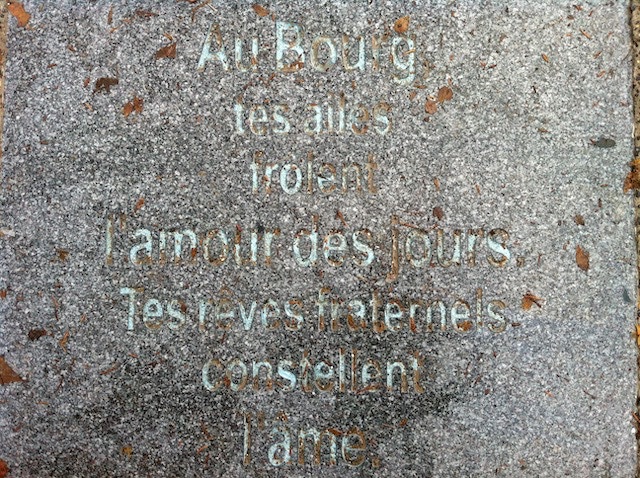 Au Bourg,
tes ailes
frôlent
l'amour des jours.
Tes rêves fraternels
constellent
l'âme.